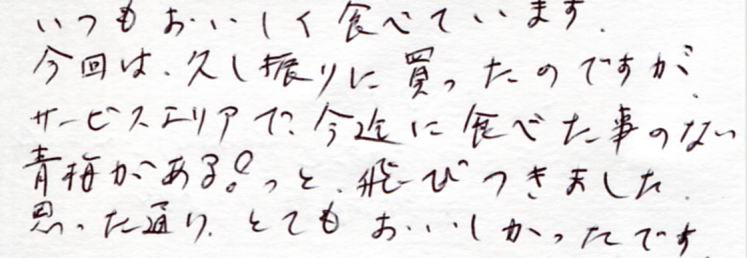 いつもおいしく食べています.
今回は、久し振りに買ったのですが、
サービスエリアで、今迄に食べた事のない
青梅がある!っと、飛びつきました.
思った通り、とてもおいしかったです.